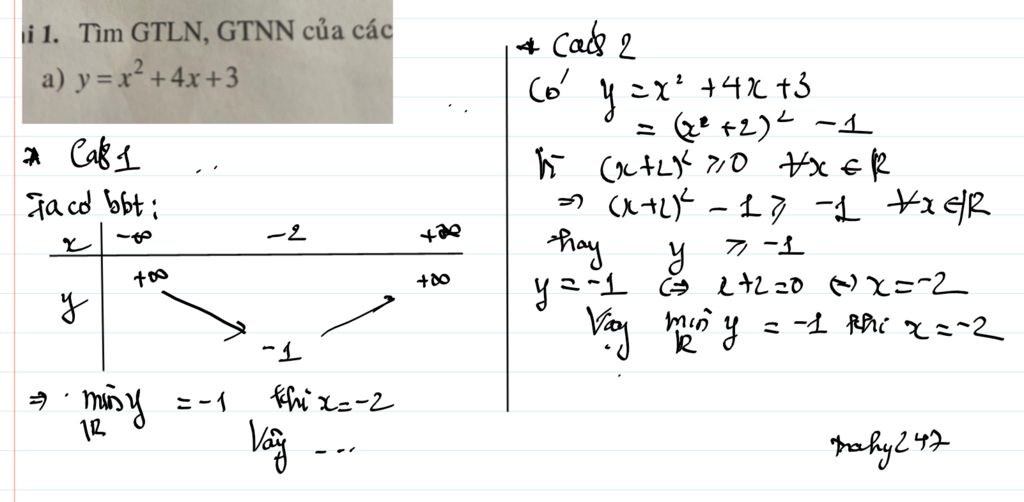 i 1. Tìm GTLN, GTNN của các
a) y = x² + 4x + 3
* Cách 1
Ta có bbt:
x -∞ -2 +∞
y +∞ -1 +∞
⇒ min y = -1 khi x = -2
ℝ
Vậy ...
* Cách 2
Có y = x² + 4x + 3
= (x² + 2)² - 1
Vì (x+2)² ≥ 0 ∀x ∈ ℝ
⇒ (x+2)² - 1 ≥ -1 ∀x ∈ ℝ
hay y ≥ -1
y = -1 ⇔ x+2=0 ⇔ x = -2
Vậy min y = -1 khi x = -2
ℝ